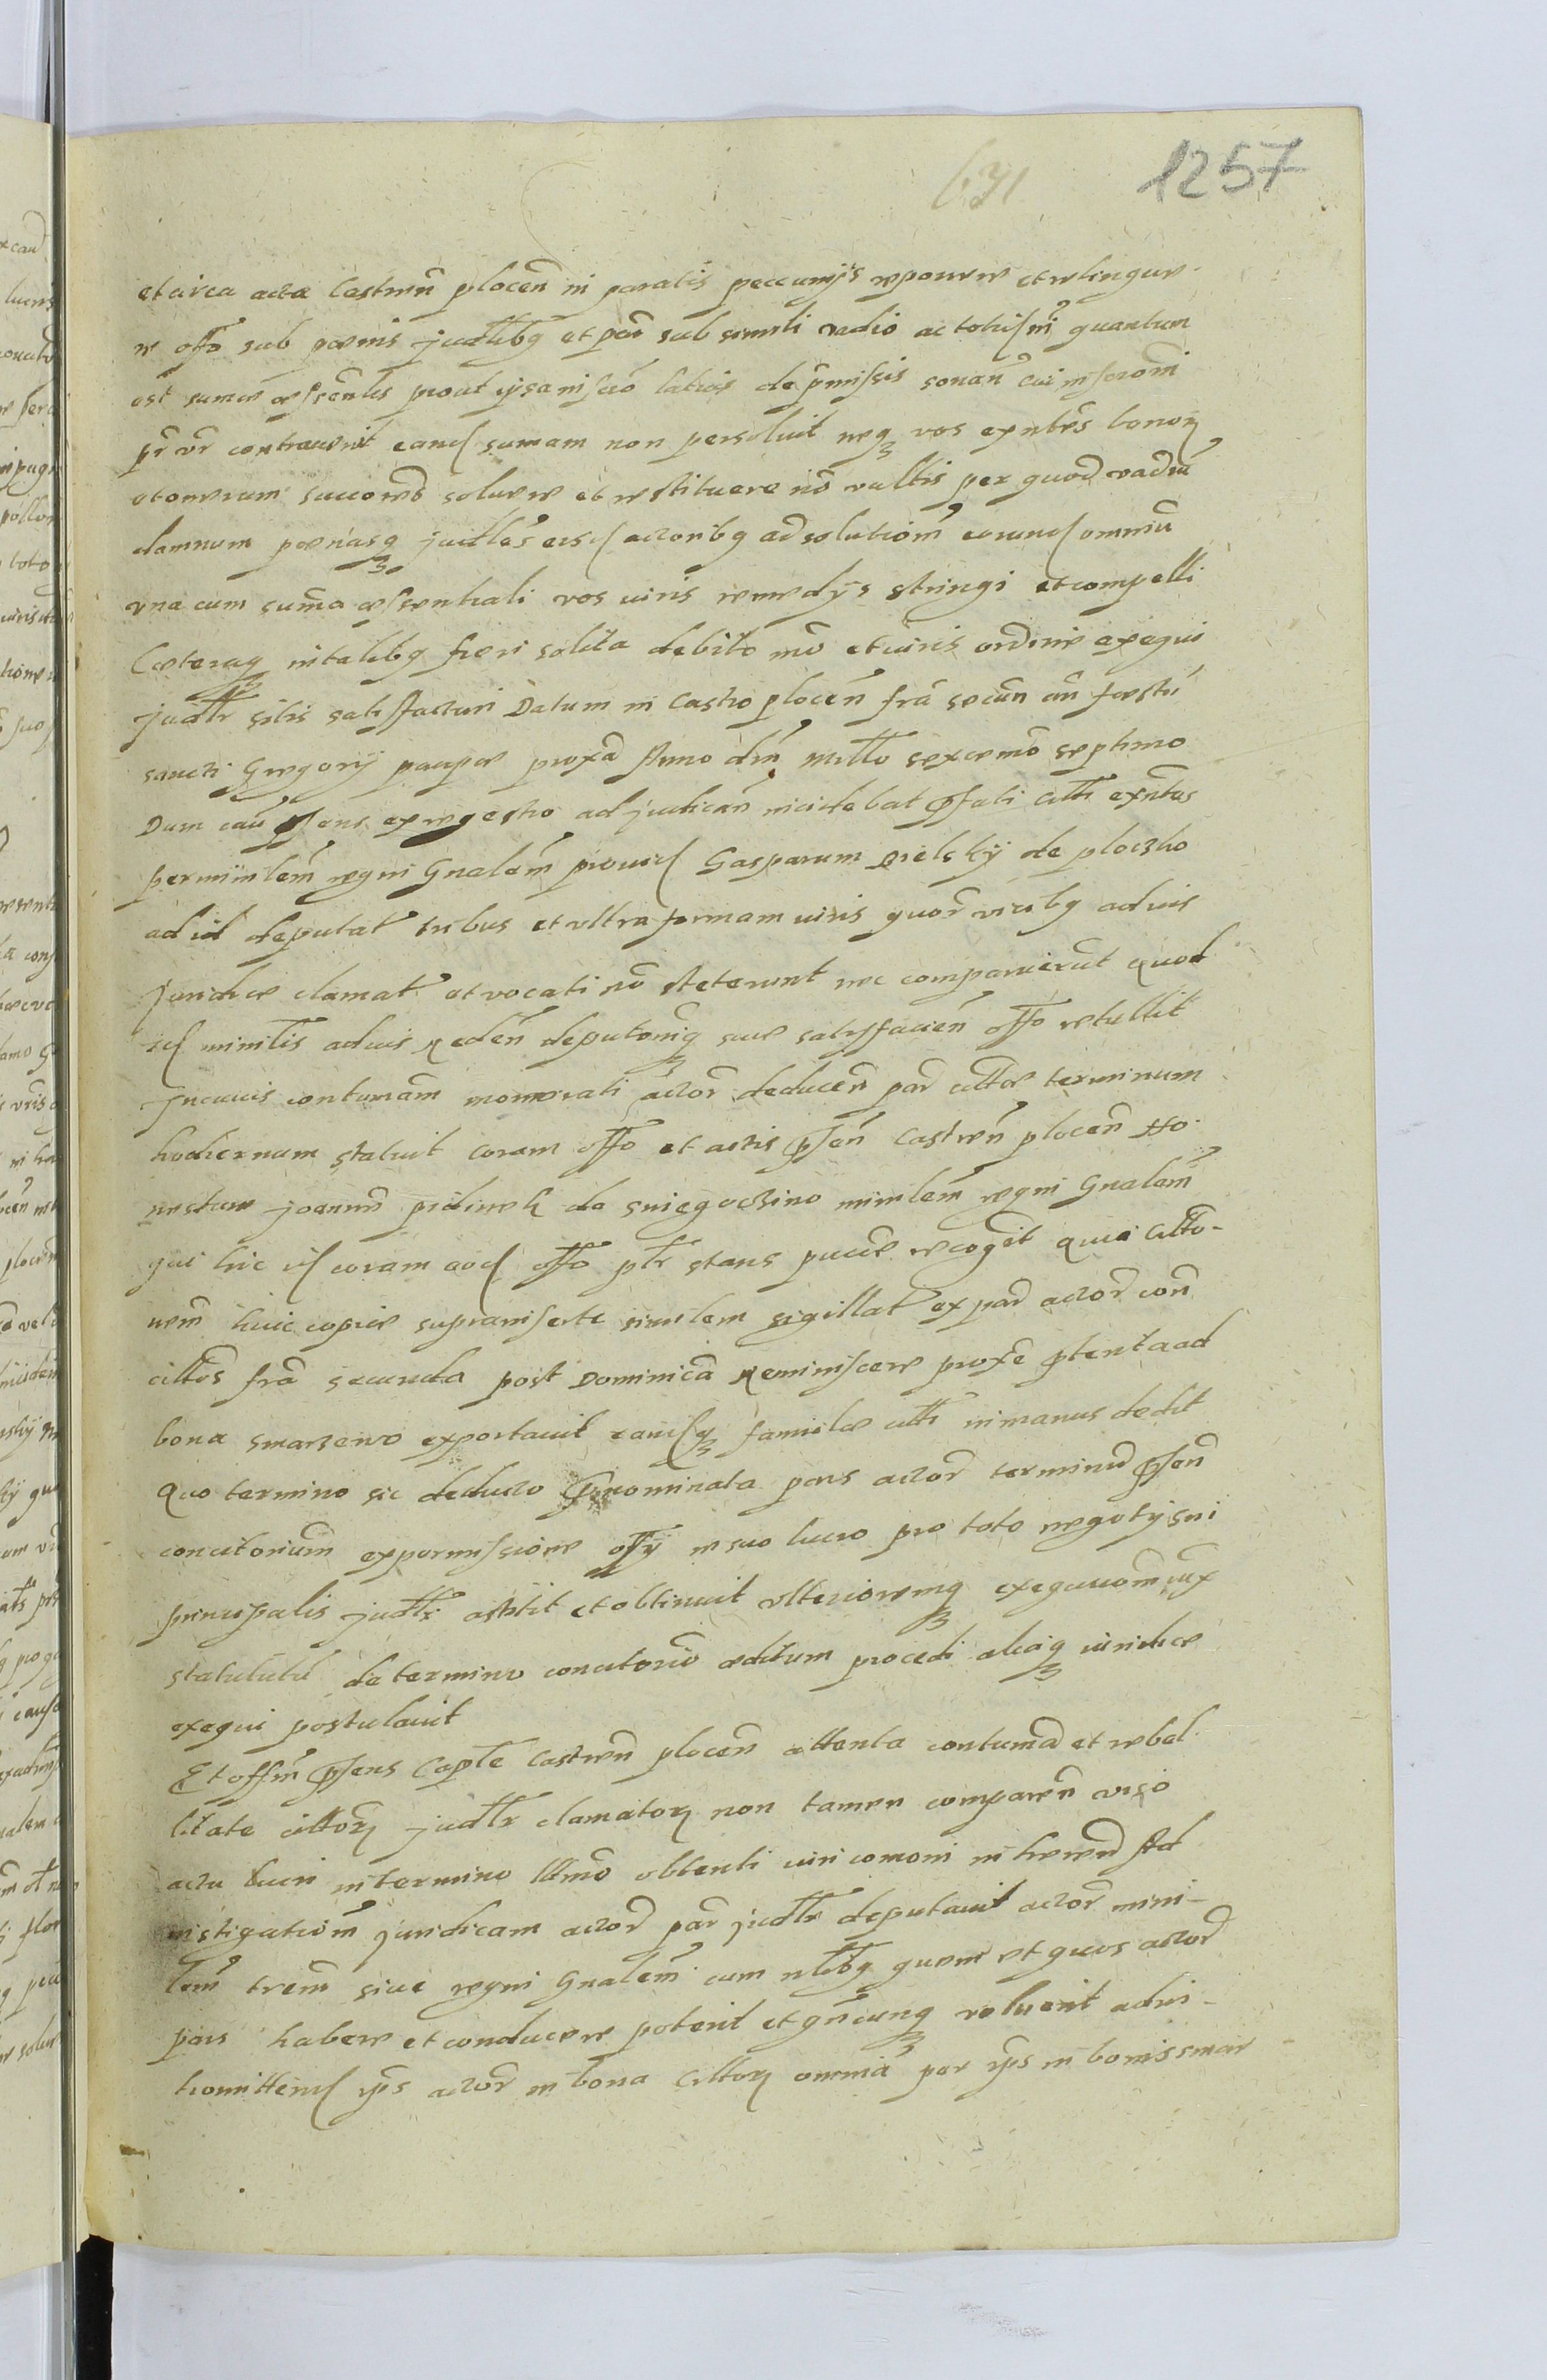 631 1257
et circa acta Castren̄ plocen̄ in paratis peccunijs reponere et relinquere
offo sub pœnis judlibq et sub simili vadio ac totiesm quantum
est sumæ essentlis prout ipsa inscrō latius de p̄missis sonan̄ cui inscrōni
pr vr contravenit eand sumam non persoluit neq vos exntes bonor
et onerum succōres soluere et restituere nō vultis per quod vadiū
damnum pœnasq judles eisd actoribq ad solutionē eorund omniū
vna cum suma essentiali vos iuris remedijs stringi et compelli
Cæteraq in talibq fieri solita debito mō et iuris ordine exequi
judlr sitis satisfacturi Datum in Castro plocen̄ fra secun an festū
sancti Gregorij papæ proxa Anno dni millo sexcemō septimo
Dum cau psens ex regestro ad judican̄ incidebat psati citti exntes
per minlem regni Gnalem provid Gasparum Bielskÿ de ploczko
ad id deputat tribus et vltra formam iuris quor vicibq ad ius
Juridice clamat et vocati nō steterunt nec comparuerūt quod
id minilis ad ius redēn deputoniq suæ satisfacien̄ offo retullit
In cuius contumam memorati actor deducen̄ par cittæ terminum
hodiernum statuit coram offo et actis psen̄ Castren̄ plocen̄ Ho-
nestum joannē pidinek de sniegoczino minlem regni Gnalem
qui hic id coram eod offo pllr stans puce recogēt quia citto-
nem huic copiæ suprainserte similem sigillat ex par actor con
cittos fra secunda post Dominicā Reminiscere proxe pterita ad
bona smarzewo exportavit eandq familæ citti in manus dedit
Quo termino sic deducto prenominata pars actor terminū psen̄
concitoriūm ex permissione offÿ in suo lucro pro toto negotÿ sui
principalis judlr astitit et obtinuit vlterioremq exequuōm iux
statututū de termino concitorio æditum procedi aliaq iuridice
exequi postulauit
Et offm psens Capte Castren̄ plocen̄ attenta contumā et rebel-
litate cittor judlr clamator non tamen comparen̄ viso
actu lucri in termino obtenti iuri comoni in hæren̄ Ad
instigationē juridicam actor par judlr deputauit actor mini-
lem trēm siue regni Gnalem cum nlibq quem et quos actor
pars habere et conducere poterit et qncunq voluerit ad in-
tromittend ips actor in bona cittor omnia per ips in bonis smar